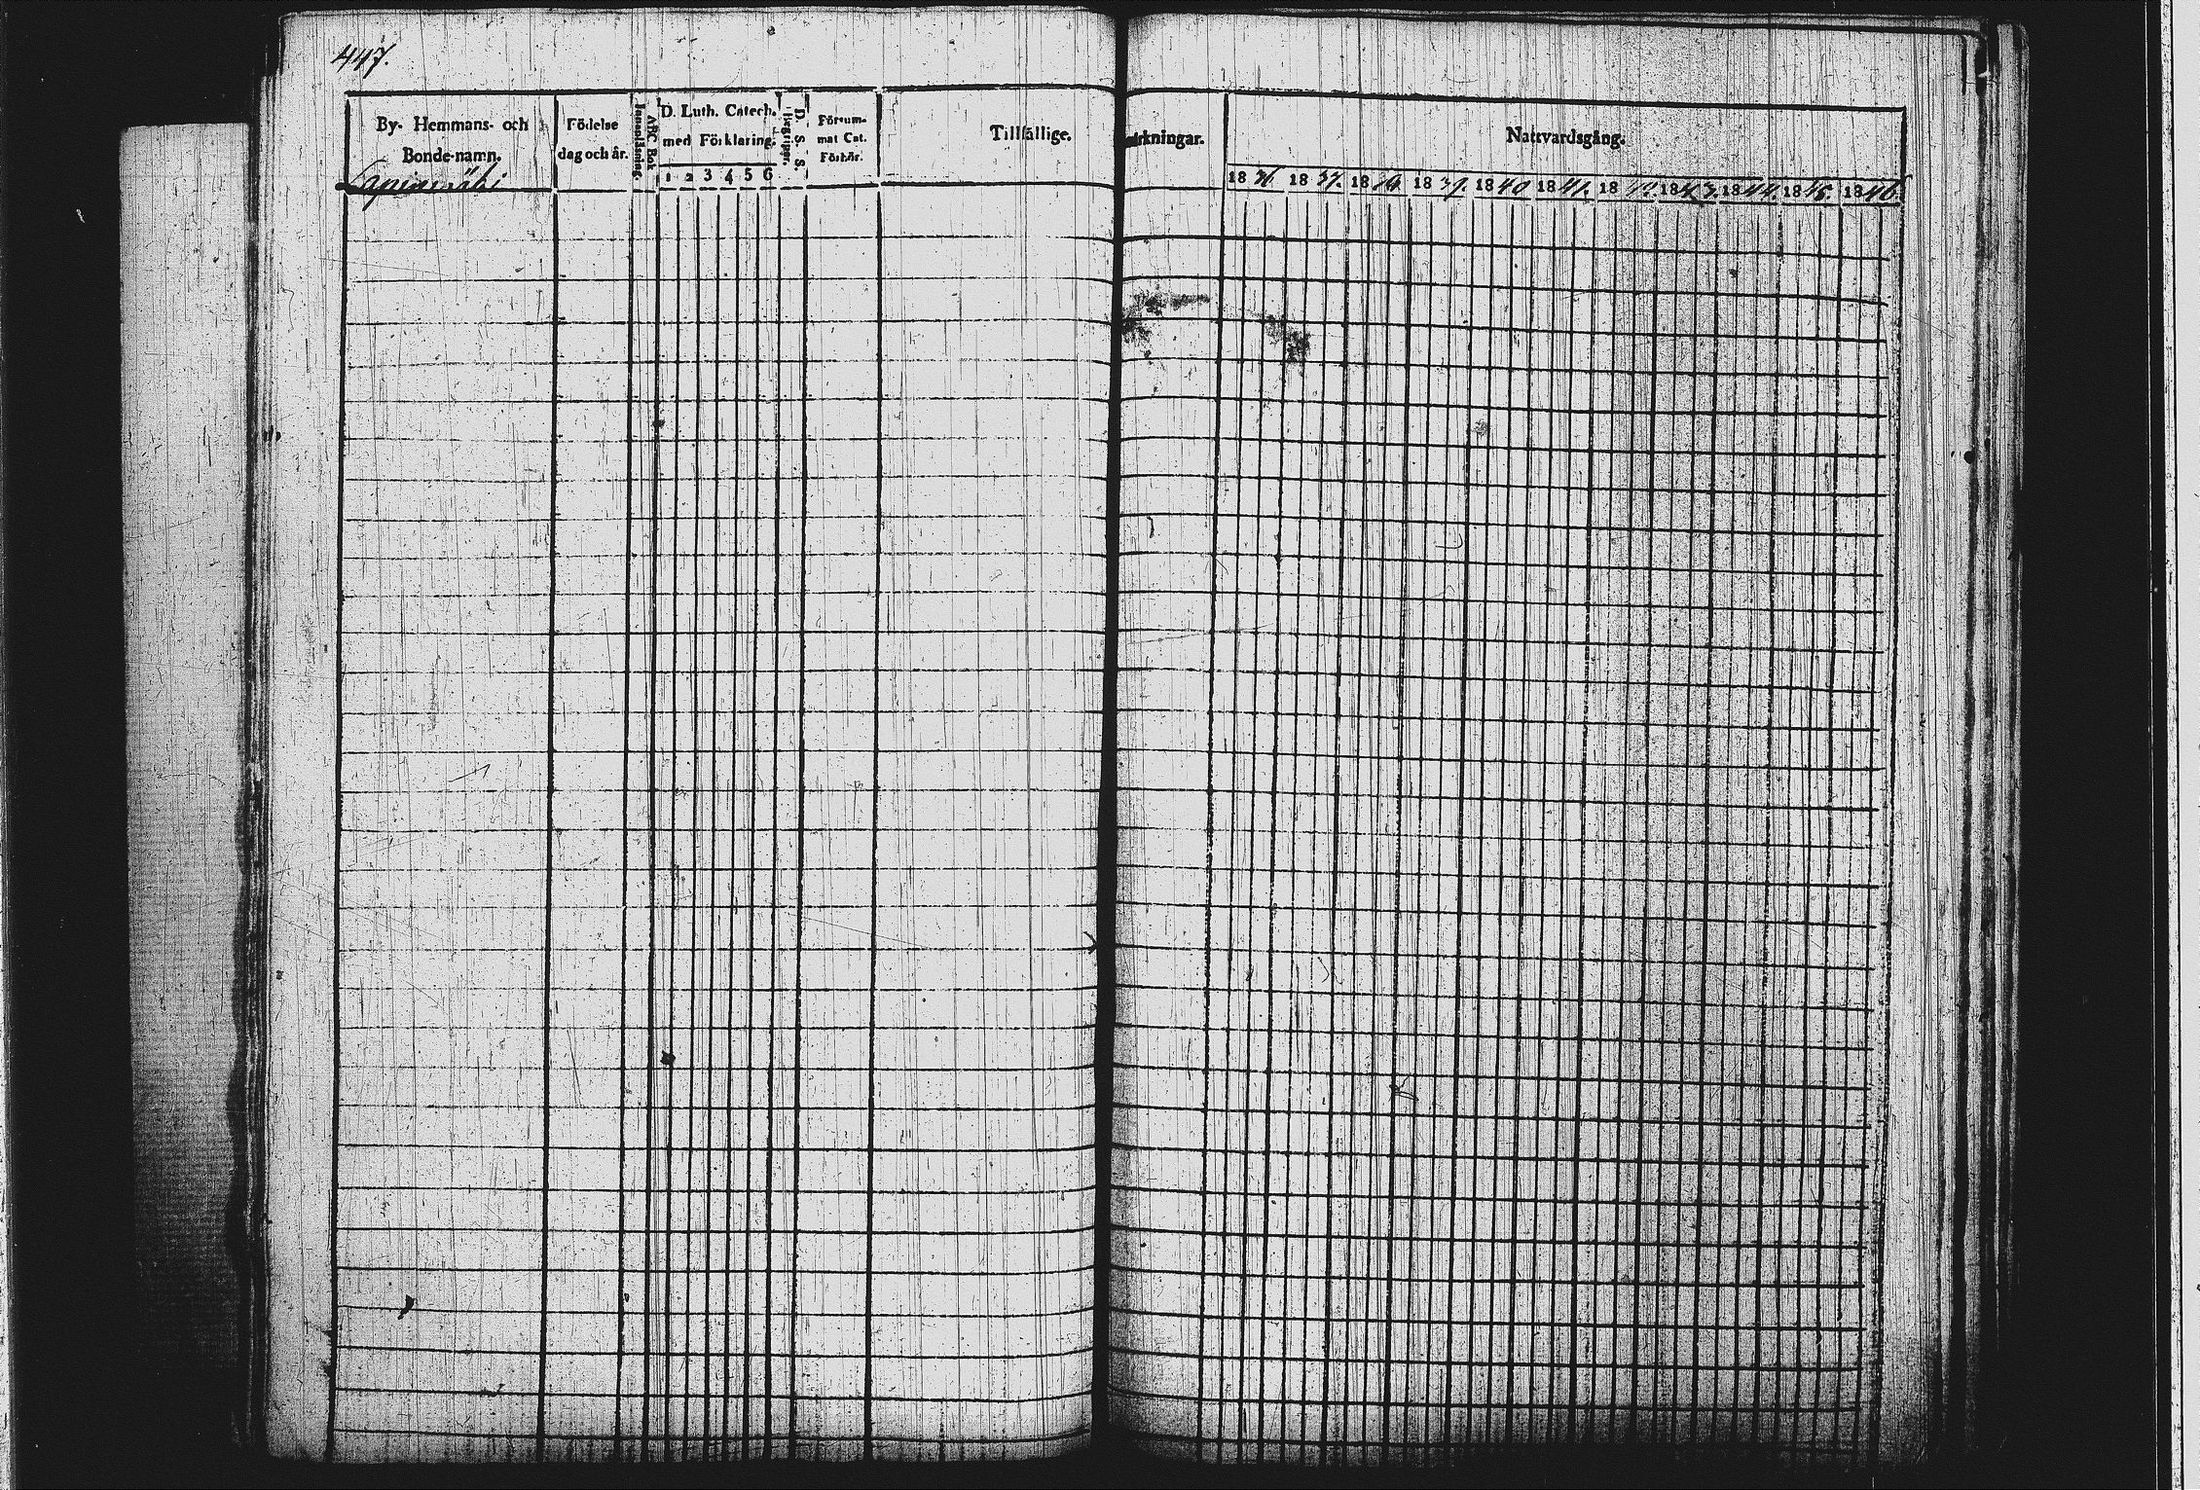 447.
By- Hemmans- och
Bonde-namn.
Födelse
dag och år.
Innanläsning.
ABC Bok
D. Luth. Catech.
med Förklaring.
1 2 3 4 5 6
Begriper.
D. S. S.
Försum-
mat Cat.
Förhör.
Tillfällige.
Nattvardsgång.
1836. 1837. 18 1839. 1840 1841. 18 1843. 1844. 1845. 1846.